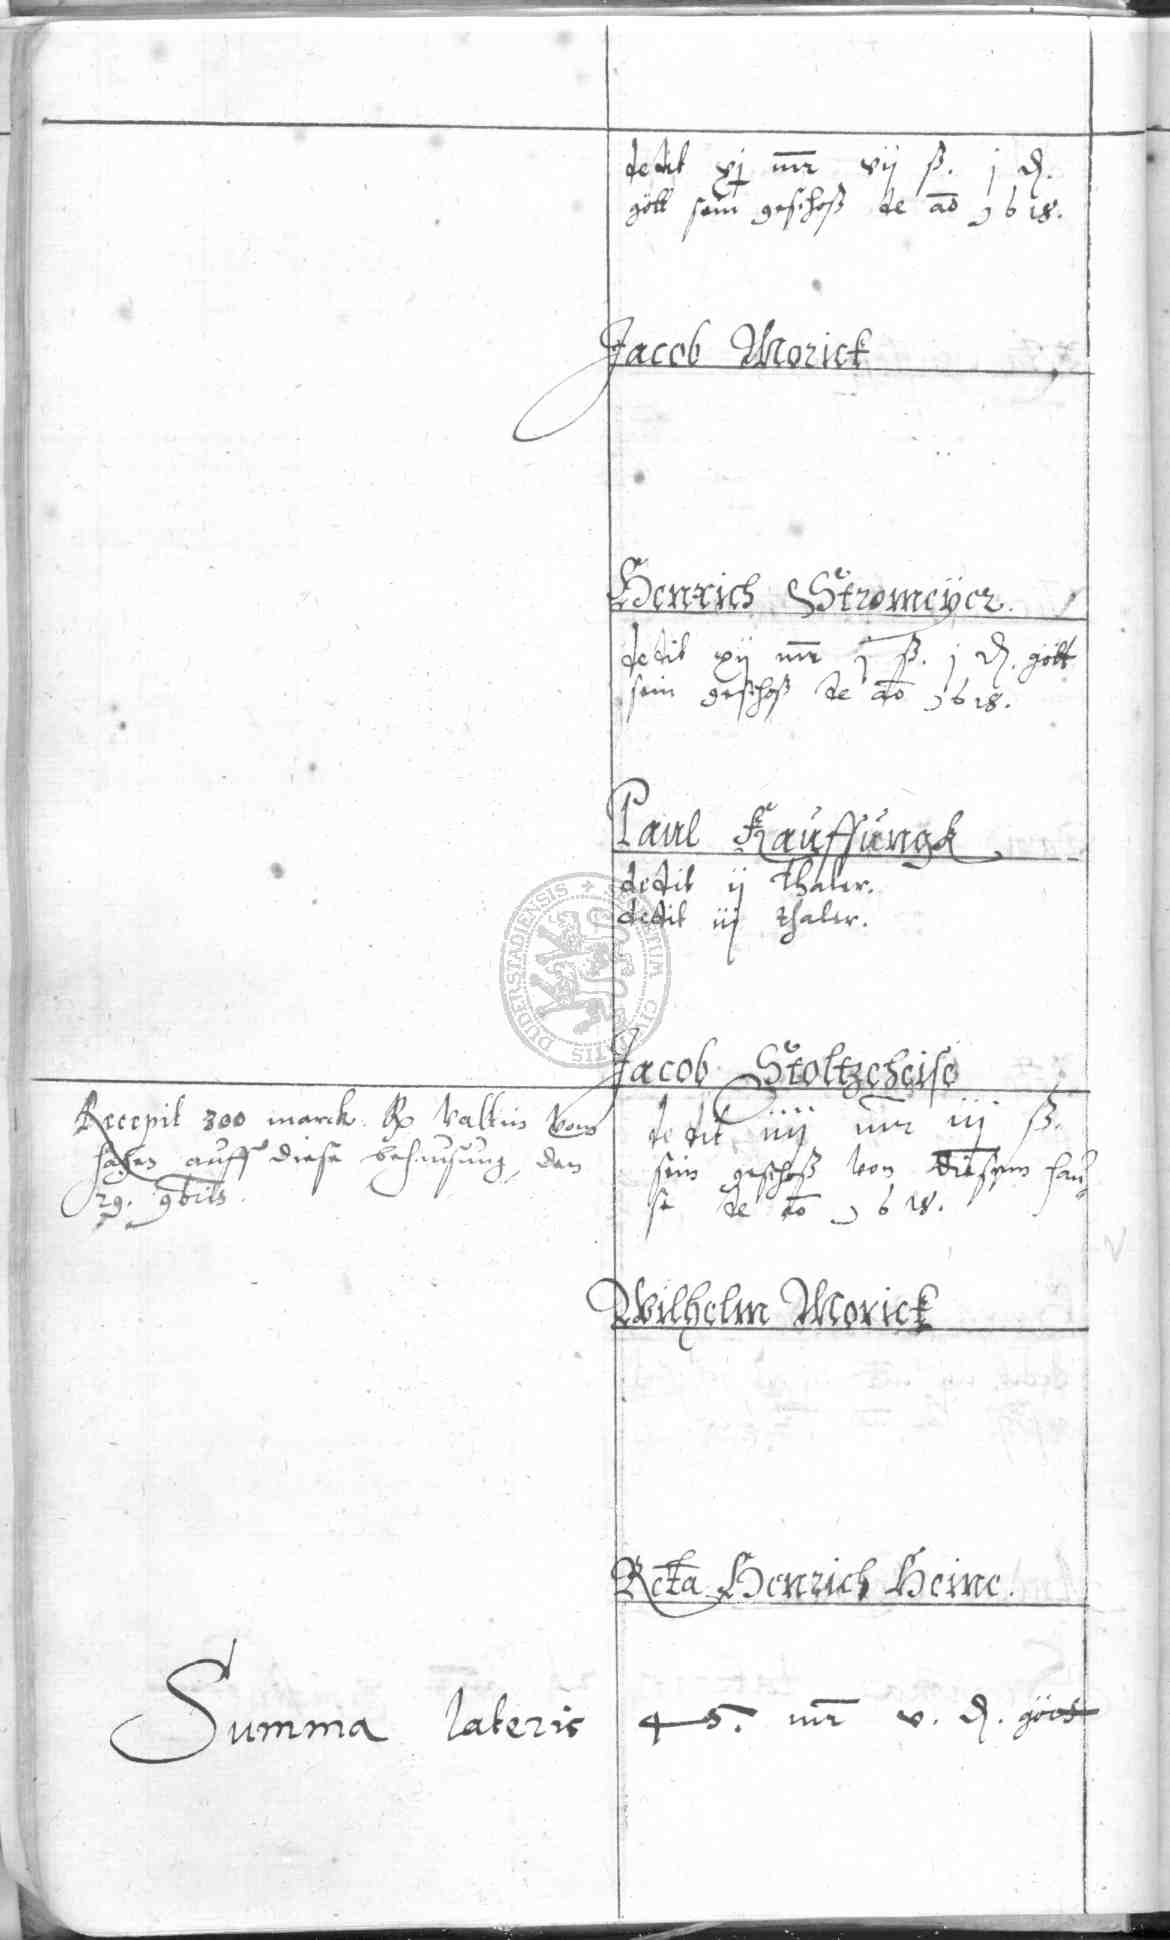 dedit xj mr vij ß. j d.
gött sein geschoß de ao 1618.
Jacob Morick
Henrich Stromeÿer.
dedit xij mr j ß. j d. gött
sein geschoß de ao 1618.
Paul Kauffungk
dedit ij thaler.
dedit iij thaler.
Jacob Stoltzeheise
Recepit 300 marck. Valtin vom
hagen auff diese behausung, den
29. 9bris.
dedit iiij mr iij ß.
sein geschoß von diesem hau
se de ao 1618.
Wilhelm Morick
Rcta Henrich Heine.
Summa lateris 45. mr v. d. gött
SIGILLUM CIVITATIS DUDERSTADIENSIS